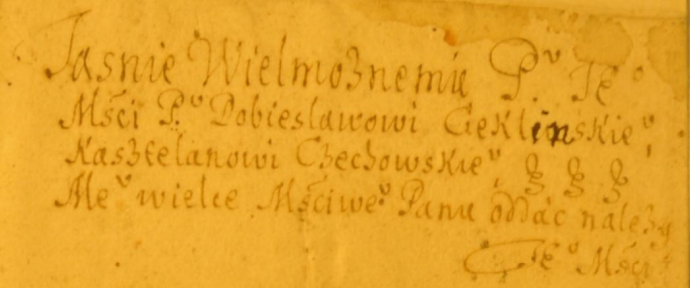 Jasnie Wielmożnemu Pᵘ Jeᵒ
Mści Pᵘ Dobiesławowi Ceklinskieᵘ,
Kasztelanowi Czechowskieᵘ,
Meᵘ wielce Mściweᵘ Panu oddać należy
Jeᵒ Mści